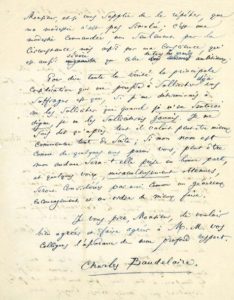 Monsieur, et je vous supplie de le répéter, que
ma modestie n'est pas simulée : c'est une
modestie commandée non seulement par la
circonstance mais aussi par ma conscience qui
est aussi
Pour dire toute la vérité, la principale
considération qui me pousse à solliciter déjà vos
suffrages est que, si je me déterminais à
ne les solliciter que quand je m'en sentirais
digne, je ne les solliciterais jamais. Je me
suis dit qu'après tout il valait peut-être mieux
commencer tout de suite. Si mon nom est
connu de quelques uns parmi vous, peut-être
mon audace sera-t-elle prise en bonne part,
et quelques voix, miraculeusement obtenues,
seront considérées par moi comme un généreux
encouragement et un ordre de mieux faire.
Je vous prie, Monsieur, de vouloir
bien agréer et faire agréer à M. M. vos
collègues l'assurance de mon profond respect.
Charles Baudelaire.